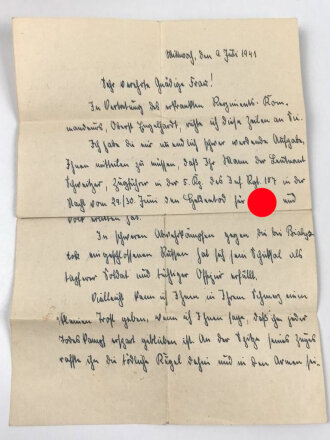 Mittwoch, den 2 Juli 1941
Sehr verehrte Gnädige Frau!
In Vertretung des erkrankten Regiments-Kom-
mandeurs, Oberst Engelhardt, richte ich diese Zeilen an Sie.
Ich habe die mir unendlich schwer werdende Aufgabe,
Ihnen mitteilen zu müssen, daß Ihr Mann der Leutnant
Schweitzer, Zugführer in der 5. Kp. des Inf. Rgt. 107 in der
Nacht vom 29./30. Juni den Heldentod für und
Volk erlitten hat.
In schweren Abwehrkämpfen gegen die bei Bialys-
tok eingeschlossenen Russen hat sich sein Schicksal als
tapferer Soldat und tüchtiger Offizier erfüllt.
Vielleicht kann ich Ihnen in Ihrem Schmerz einen
kleinen Trost geben, wenn ich Ihnen sage, daß ihm jeder
Todeskampf erspart geblieben ist. An der Spitze seines Zuges
raffte ihn die tödliche Kugel dahin und in den Armen sei-